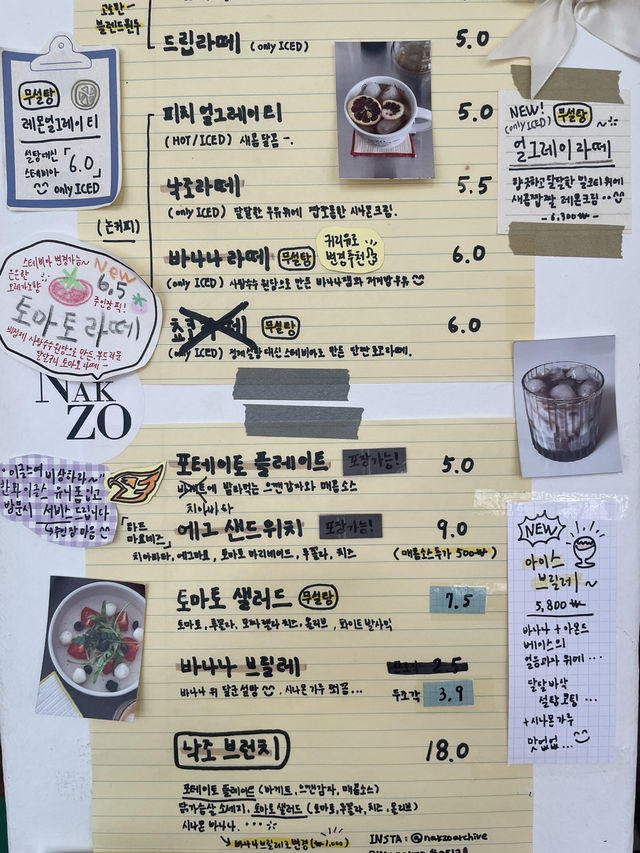 고소한 -
블렌드원두
드립라떼 (only ICED) 5.0
무설탕
레몬얼그레이 티
설탕대신
스테비아 「6.0」
only ICED
피치 얼그레이 티 5.0
(HOT/ICED) 새콤달콤 -.
NEW! 무설탕
(only ICED)
얼그레이 라떼
향긋하고 달달한 밀크티 위에
새콤짭짤 레몬크림..
- 6,300₩ -
낙조라떼 5.5
(only ICED) 달달한 우유위에 짭쪼롬한 시나몬크림.
(논커피)
바나나 라떼 무설탕 6.0
귀리유로
변경추천
(only ICED) 사탕수수원당으로 만든 바나나잼과 저지방우유
스테비아 변경가능~
NEW
6.5
주인장 픽!
토마토라떼
비정제 사탕수수원당으로 만든, 부드러운
달달구리 토마토 라떼 -
무설탕 6.0
(only ICED) 정제설탕 대신 스테비아로 만든 달콤 초코라떼.
NAK
ZO
포테이토 플레이트 포장가능! 5.0
바게트에 발라먹는 으깬감자와 매콤소스
치아바타
· 이글스여 비상하라~
한화이글스 유니폼 입고
방문시 서비스드립니다
-주인장 마음
「하프
마요비즈」
에그 샌드위치 포장가능! 9.0
치아바타, 에그마요, 토마토 마리네이드, 루꼴라, 치즈
(매콤소스추가 500₩)
NEW
아이스
브릴레~
5,800₩
바나나 + 아몬드
베이스의
얼음과자 위에...
달달바삭
설탕코팅...
+ 시나몬가루
맛없없...
토마토 샐러드 무설탕 7.5
토마토, 루꼴라, 모짜렐라 치즈, 올리브, 화이트발사믹
바나나 브릴레 2.5
바나나 위 달군설탕 시나몬 가루 톡톡...
두조각 3.9
낙조 브런치 18.0
포테이토 플레이트 (바게트, 으깬감자, 매콤소스)
닭가슴살 소세지, 토마토 샐러드 (토마토, 루꼴라, 치즈, 올리브)
시나몬 바나나. ...
↳ 바나나브릴레로 변경 (₩1,000)
INSTA: @nakzoarchive